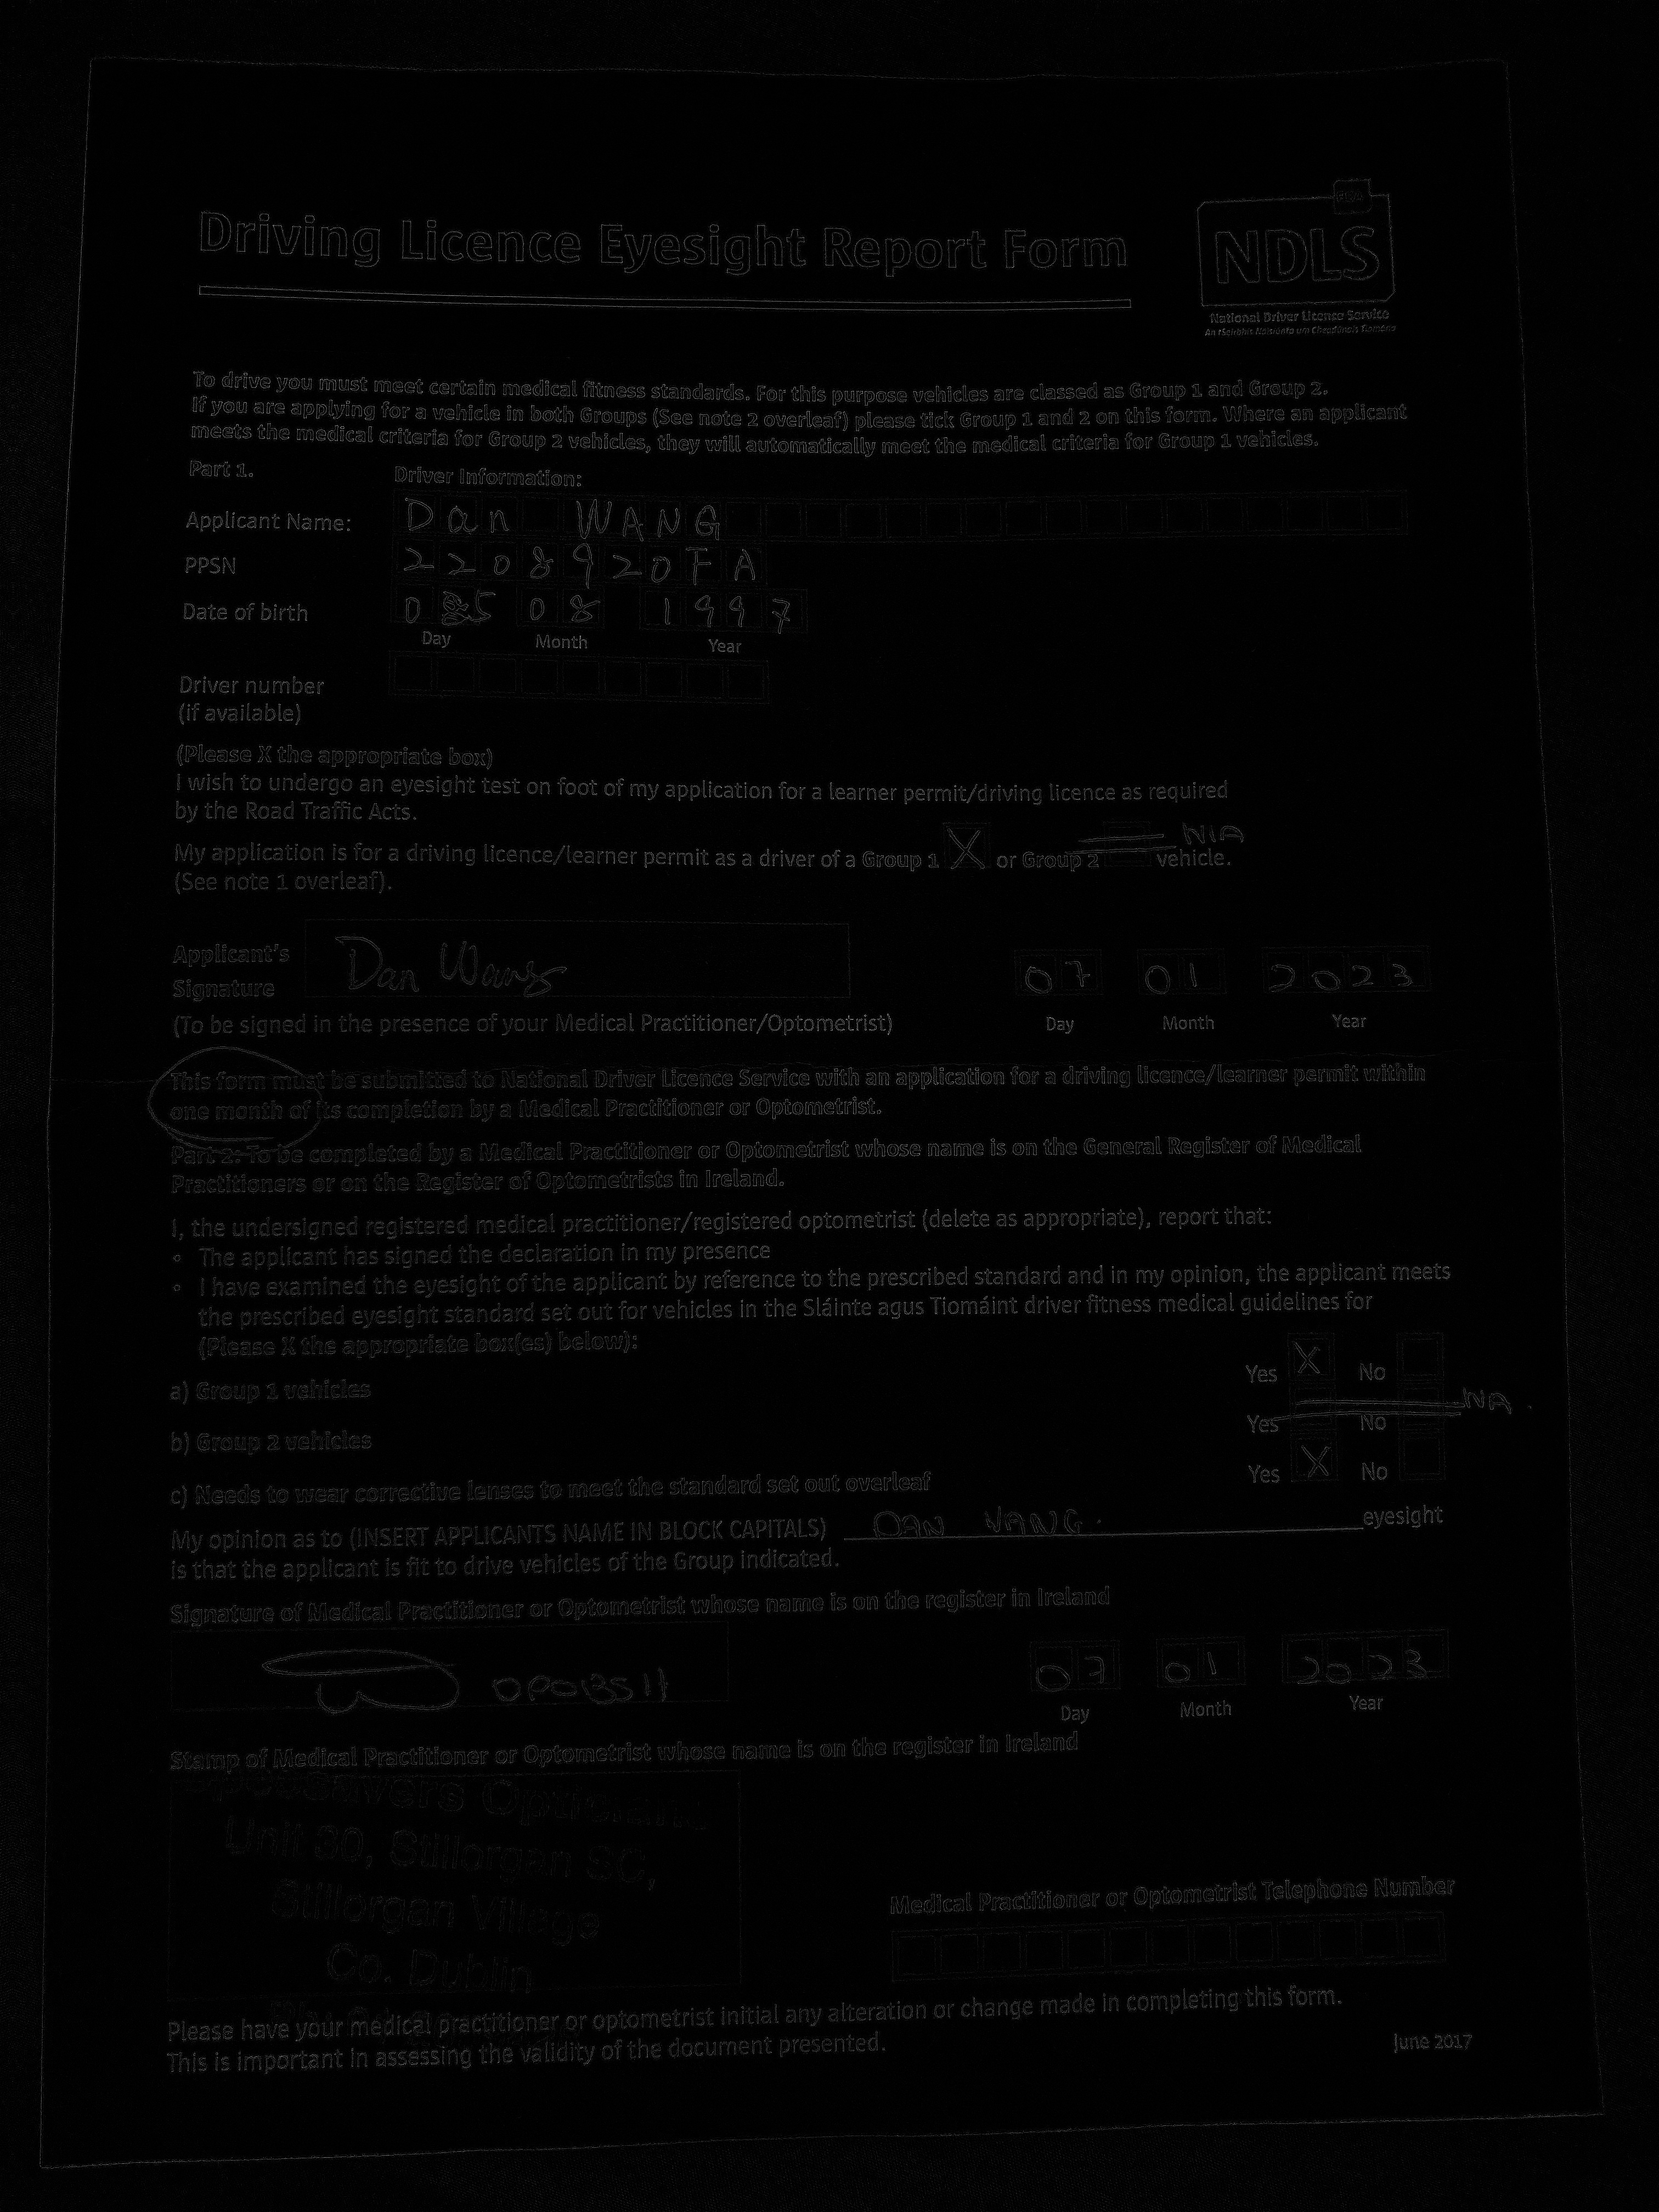 Driving Licence Eyesight Report Form
RSA
NDLS
National Driver Licence Service
An tSeirbhís Náisiúnta um Cheadúnais Tiomána
To drive you must meet certain medical fitness standards. For this purpose vehicles are classed as Group 1 and Group 2.
If you are applying for a vehicle in both Groups (See note 2 overleaf) please tick Group 1 and 2 on this form. Where an applicant
meets the medical criteria for Group 2 vehicles, they will automatically meet the medical criteria for Group 1 vehicles.
Part 1. Driver Information:
Applicant Name: Dan WANG
PPSN 2208920FA
Date of birth 05 08 1997
Day Month Year
Driver number
(if available)
(Please X the appropriate box)
I wish to undergo an eyesight test on foot of my application for a learner permit/driving licence as required
by the Road Traffic Acts.
My application is for a driving licence/learner permit as a driver of a Group 1 X or Group 2 vehicle. N/A
(See note 1 overleaf).
Applicant's
Signature Dan Wang 07 01 2023
(To be signed in the presence of your Medical Practitioner/Optometrist) Day Month Year
This form must be submitted to National Driver Licence Service with an application for a driving licence/learner permit within
one month of its completion by a Medical Practitioner or Optometrist.
Part 2: To be completed by a Medical Practitioner or Optometrist whose name is on the General Register of Medical
Practitioners or on the Register of Optometrists in Ireland.
I, the undersigned registered medical practitioner/registered optometrist (delete as appropriate), report that:
• The applicant has signed the declaration in my presence
• I have examined the eyesight of the applicant by reference to the prescribed standard and in my opinion, the applicant meets
the prescribed eyesight standard set out for vehicles in the Sláinte agus Tiomáint driver fitness medical guidelines for
(Please X the appropriate box(es) below):
a) Group 1 vehicles Yes X No
b) Group 2 vehicles Yes No NA
c) Needs to wear corrective lenses to meet the standard set out overleaf Yes X No
My opinion as to (INSERT APPLICANTS NAME IN BLOCK CAPITALS) DAN WANG. eyesight
is that the applicant is fit to drive vehicles of the Group indicated.
Signature of Medical Practitioner or Optometrist whose name is on the register in Ireland
07 01 2023
Day Month Year
Stamp of Medical Practitioner or Optometrist whose name is on the register in Ireland
Specsavers Opticians
Unit 30, Stillorgan SC,
Stillorgan Village
Co. Dublin
Medical Practitioner or Optometrist Telephone Number
Please have your medical practitioner or optometrist initial any alteration or change made in completing this form.
This is important in assessing the validity of the document presented.
June 2017